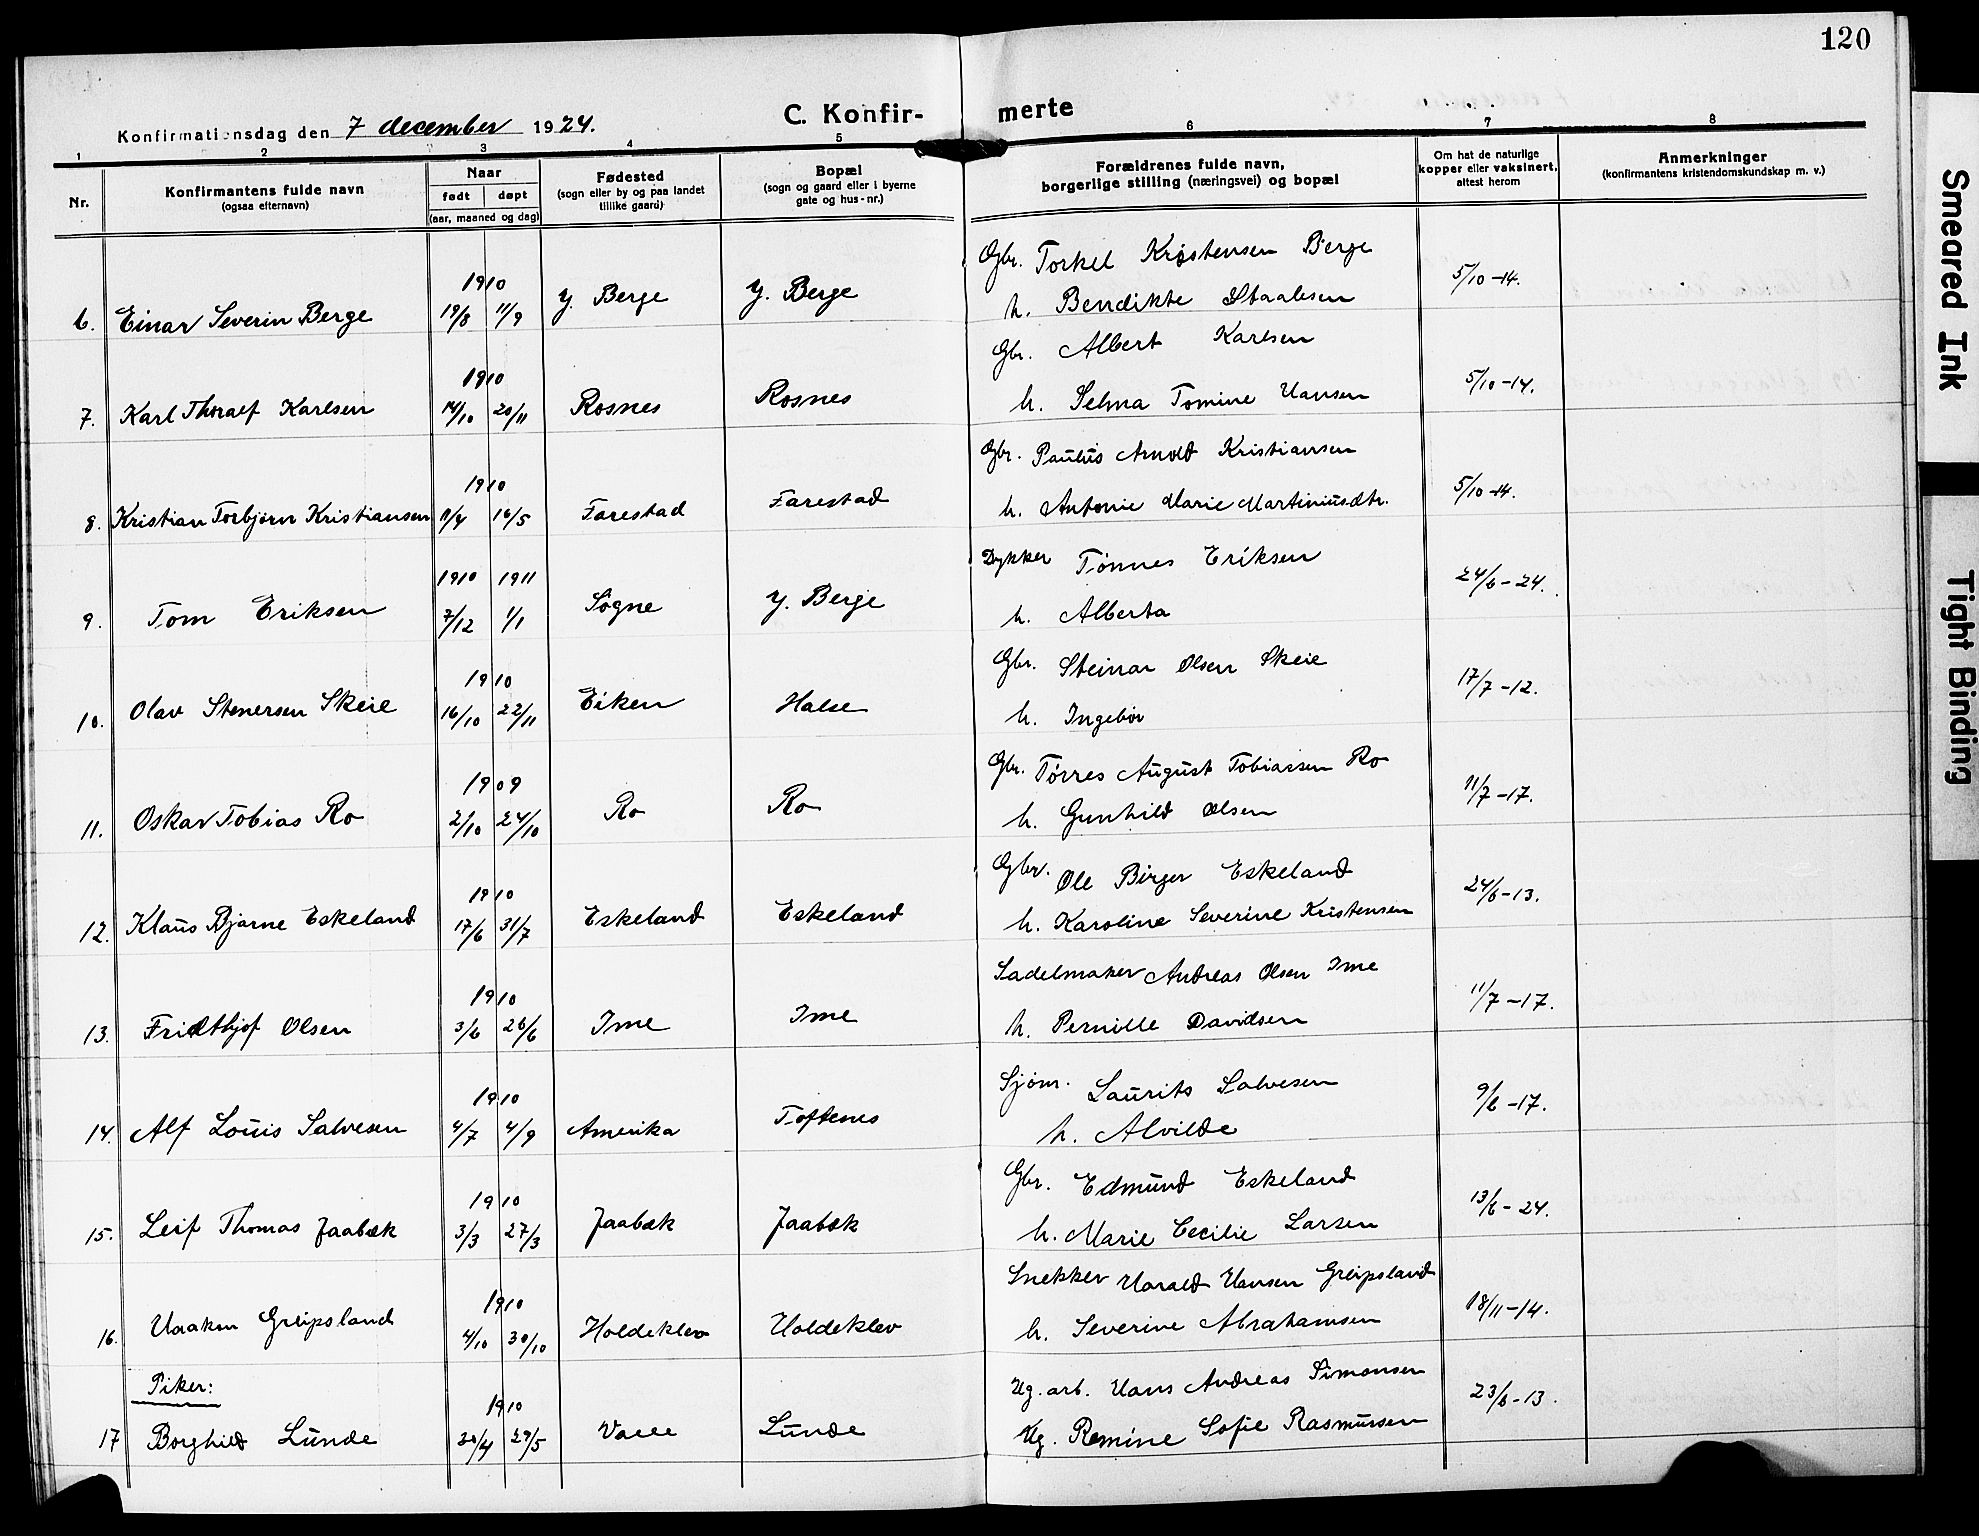 120
C. Konfir- merte
Konfirmationsdag den 7 december 1924.
1 2 3 4 5 6 7 8
Nr.
Konfirmantens fulde navn
(ogsaa efternavn)
Naar
født døpt
(aar, maaned og dag)
Fødested
(sogn eller by og paa landet
tillike gaard)
Bopæl
(sogn og gaard eller i byerne
gate og hus-nr.)
Forældrenes fulde navn,
borgerlige stilling (næringsvei) og bopæl
Om hat de naturlige
kopper eller vaksinert,
attest herom
Anmerkninger
(konfirmantens kristendomskundskap m. v.)
Gbr. Torkel Kristensen Berge
1910 5/10-14.
6. Einar Severin Berge 19/8 11/9 y. Berge y. Berge h. Bendikte Staalesen
Gbr. Albert Karlsen
1910 5/10-14.
7. Karl Thoralf Karlsen 14/10 20/11 Rosnes Rosnes h. Selma Tomine Hansen
Gbr. Paulus Arnold Kristiansen
1910 5/10-14.
8. Kristian Torbjørn Kristiansen 11/4 16/5 Farestad Farestad h. Antonie Marie Martiniusdtr.
Dykker Tønnes Eriksen
1910 1911 24/6-24.
9. Tom Eriksen 7/12 1/1 Søgne y. Berge h. Alberta
Gbr. Steinar Olsen Skeie
1910 17/7-12.
10. Olav Stenersen Skeie 16/10 22/11 Eiken Halse h. Ingebor
Gbr. Tørres August Tobiassen Ro
1909 11/7-17.
11. Oskar Tobias Ro 2/10 24/10 Ro Ro h. Gunhild Olsen
Gbr. Ole Birger Eskeland
1910 24/6-13.
12. Klaus Bjarne Eskeland 17/6 31/7 Eskeland Eskeland h. Karoline Severine Kristensen
Sadelmaker Andreas Olsen Ime
1910 11/7-17.
13. Fridthjof Olsen 3/6 26/6 Ime Ime h. Pernille Davidsen
Sjøm. Laurits Salvesen
1910 9/6-17.
14. Alf Louis Salvesen 4/7 4/9 Amerika Toftenes h. Alvilde
Gbr. Edmund Eskeland
1910 13/6-24.
15. Leif Thomas Jaabæk 3/3 27/3 Jaabæk Jaabæk h. Marie Cecilie Larsen
Snekker Harald Hansen Greipsland
1910 18/11-14.
16. Haakon Greipsland 4/10 30/10 Holdeklev Holdeklev h. Severine Abrahamsen
Piker:
Ug. arb. Hans Andreas Simonsen
1910 23/6-13.
17 Borghild Lunde 30/4 29/5 Valle Lunde Ug. Remine Sofie Rasmussen
Smeared Ink
Tight Binding